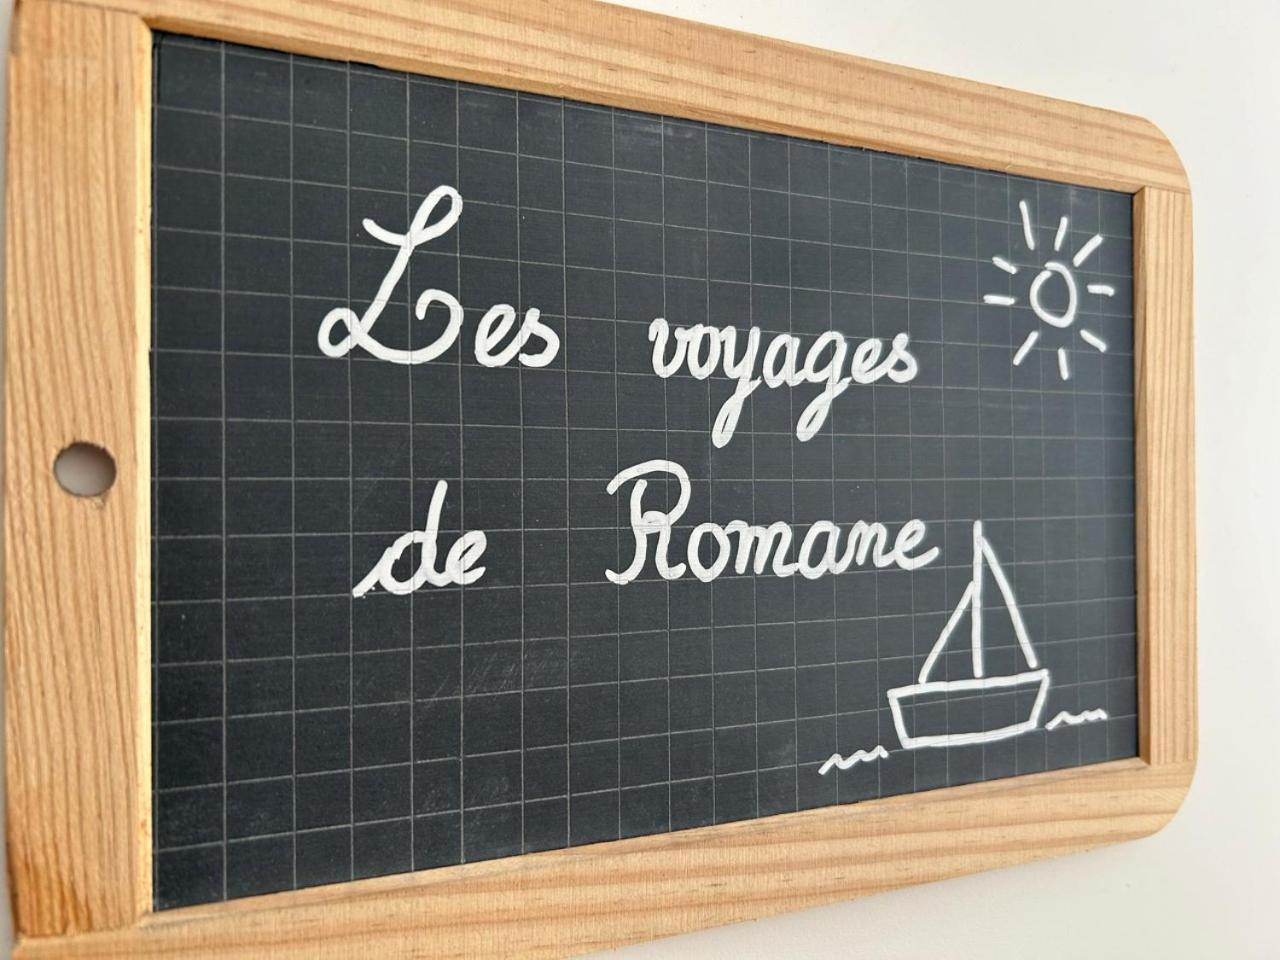 Les voyages
de Romane